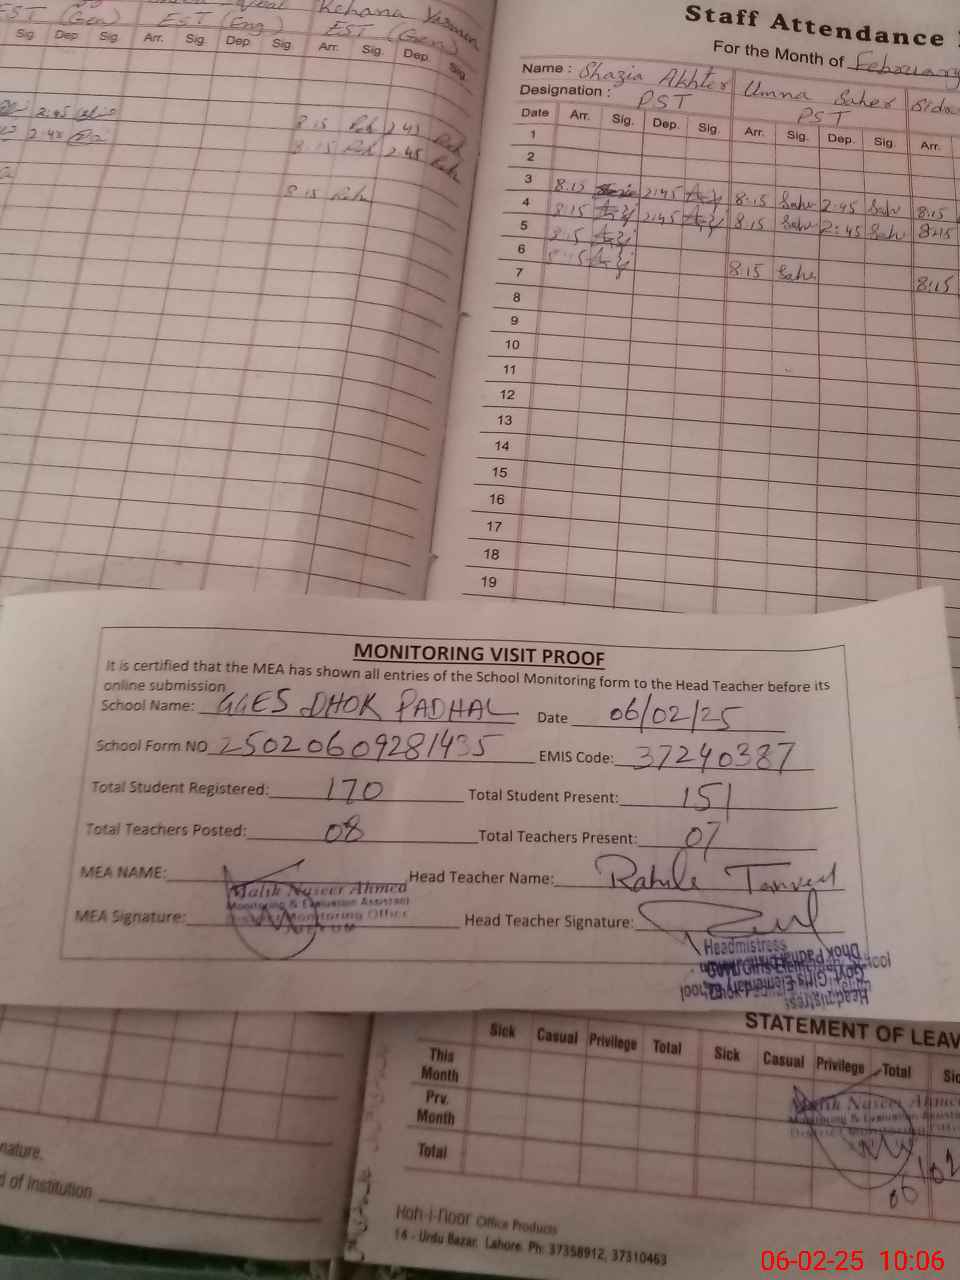 EST (Gen) EST (Eng) EST (Gen)
Rehana Yasmin
Sig. Dep. Sig. Arr. Sig. Dep. Sig. Arr. Sig. Dep. Sig.
2:45 8:15 2:45
2:45 8:15 2:45
8:15
Staff Attendance
For the Month of February
Name : Shazia Akhter Umna Saher Sidra
Designation : PST PST
Date Arr. Sig. Dep. Sig. Arr. Sig. Dep. Sig. Arr.
1
2
3 8:15 2:45 8:15 Sahr 2:45 Sahr 8:15
4 8:15 2:45 8:15 Sahr 2:45 Sahr 8:15
5 8:15
6 8:15 8:15 Sahr 8:15
7
8
9
10
11
12
13
14
15
16
17
18
19
MONITORING VISIT PROOF
It is certified that the MEA has shown all entries of the School Monitoring form to the Head Teacher before its
online submission
School Name: GGES DHOK PADHAL Date 06/02/25
School Form NO 25020609281435 EMIS Code: 37240387
Total Student Registered: 170 Total Student Present: 151
Total Teachers Posted: 08 Total Teachers Present: 07
MEA NAME: Head Teacher Name: Rahila Tanveer
Malik Naseer Ahmed
Monitoring & Evaluation Assistant
MEA Signature: Monitoring Office Head Teacher Signature:
Headmistress
Govt. Girls Elementary School
Dhok Padhal
STATEMENT OF LEAV
Sick Casual Privilege Total Sick Casual Privilege Total Sic
This Month
Prv. Month
Total
Malik Naseer Ahmed
Monitoring & Evaluation Assistant
District Monitoring Office
06/02
nature.
d of institution
Koh-i-noor Office Products
14 - Urdu Bazar, Lahore. Ph: 37358912, 37310463
06-02-25 10:06